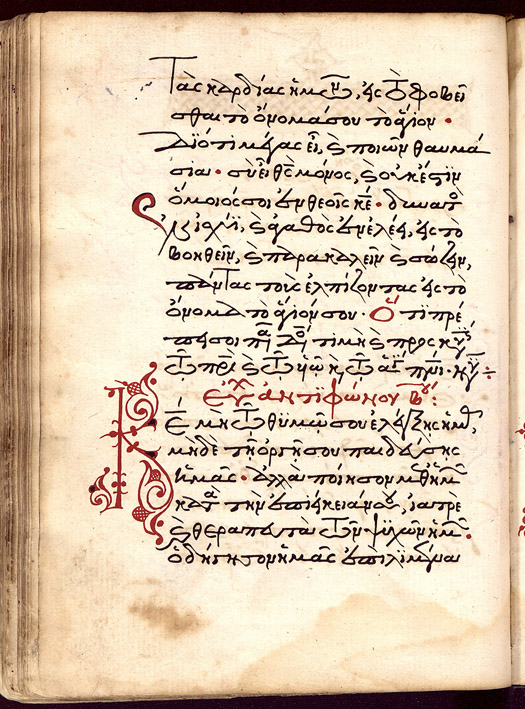 Τὰς καρδίας ἡμῶν, εἰς τὸ φοβεῖ
σθαι τὸ ὄνομά σου τὸ ἅγιον ·
Διότι μέγας εἶ, ϗ ποιῶν θαυμά
σια · σὺ εἶ θς μόνος, ϗ οὐκ ἔστϊν
ὅμοιός σοι ἐν θεοῖς κε · δυνατὸς
ἐν ἰσχύϊ, ϗ ἀγαθὸς ἐν ἐλέει, εἰς τὸ
βοηθεῖν, ϗ παρακαλεῖν ϗ σώζειν,
πάντας τοὺς ἐλπίζοντας εἰς τὸ
ὄνομα τὸ ἅγιον σου · Ὅτι πρέ
πει σοι πᾶσα δόξα τιμὴ ϗ προσκύ
τῷ πρὶ ϗ τῷ υἱῷ ϗ τῷ ἁγ πνι · νῦ
Εὐχ ἀντιφώνου β :
Κε μὴ τῷ θυμῷ σου ἐλέγξης ἡμᾶς,
μηδὲ τῇ ὀργῇ σου παιδεύσης
ἡμᾶς · ἀλλὰ ποίησον μεθ ἡμῶν
κατὰ τὴν ἐπιείκειάν σου, ἰατρὲ
ϗ θεραπευτὰ τῶν ψυχῶν ἡμῶν ·
ὁδήγησον ἡμᾶς ἐπὶ λϊμένα